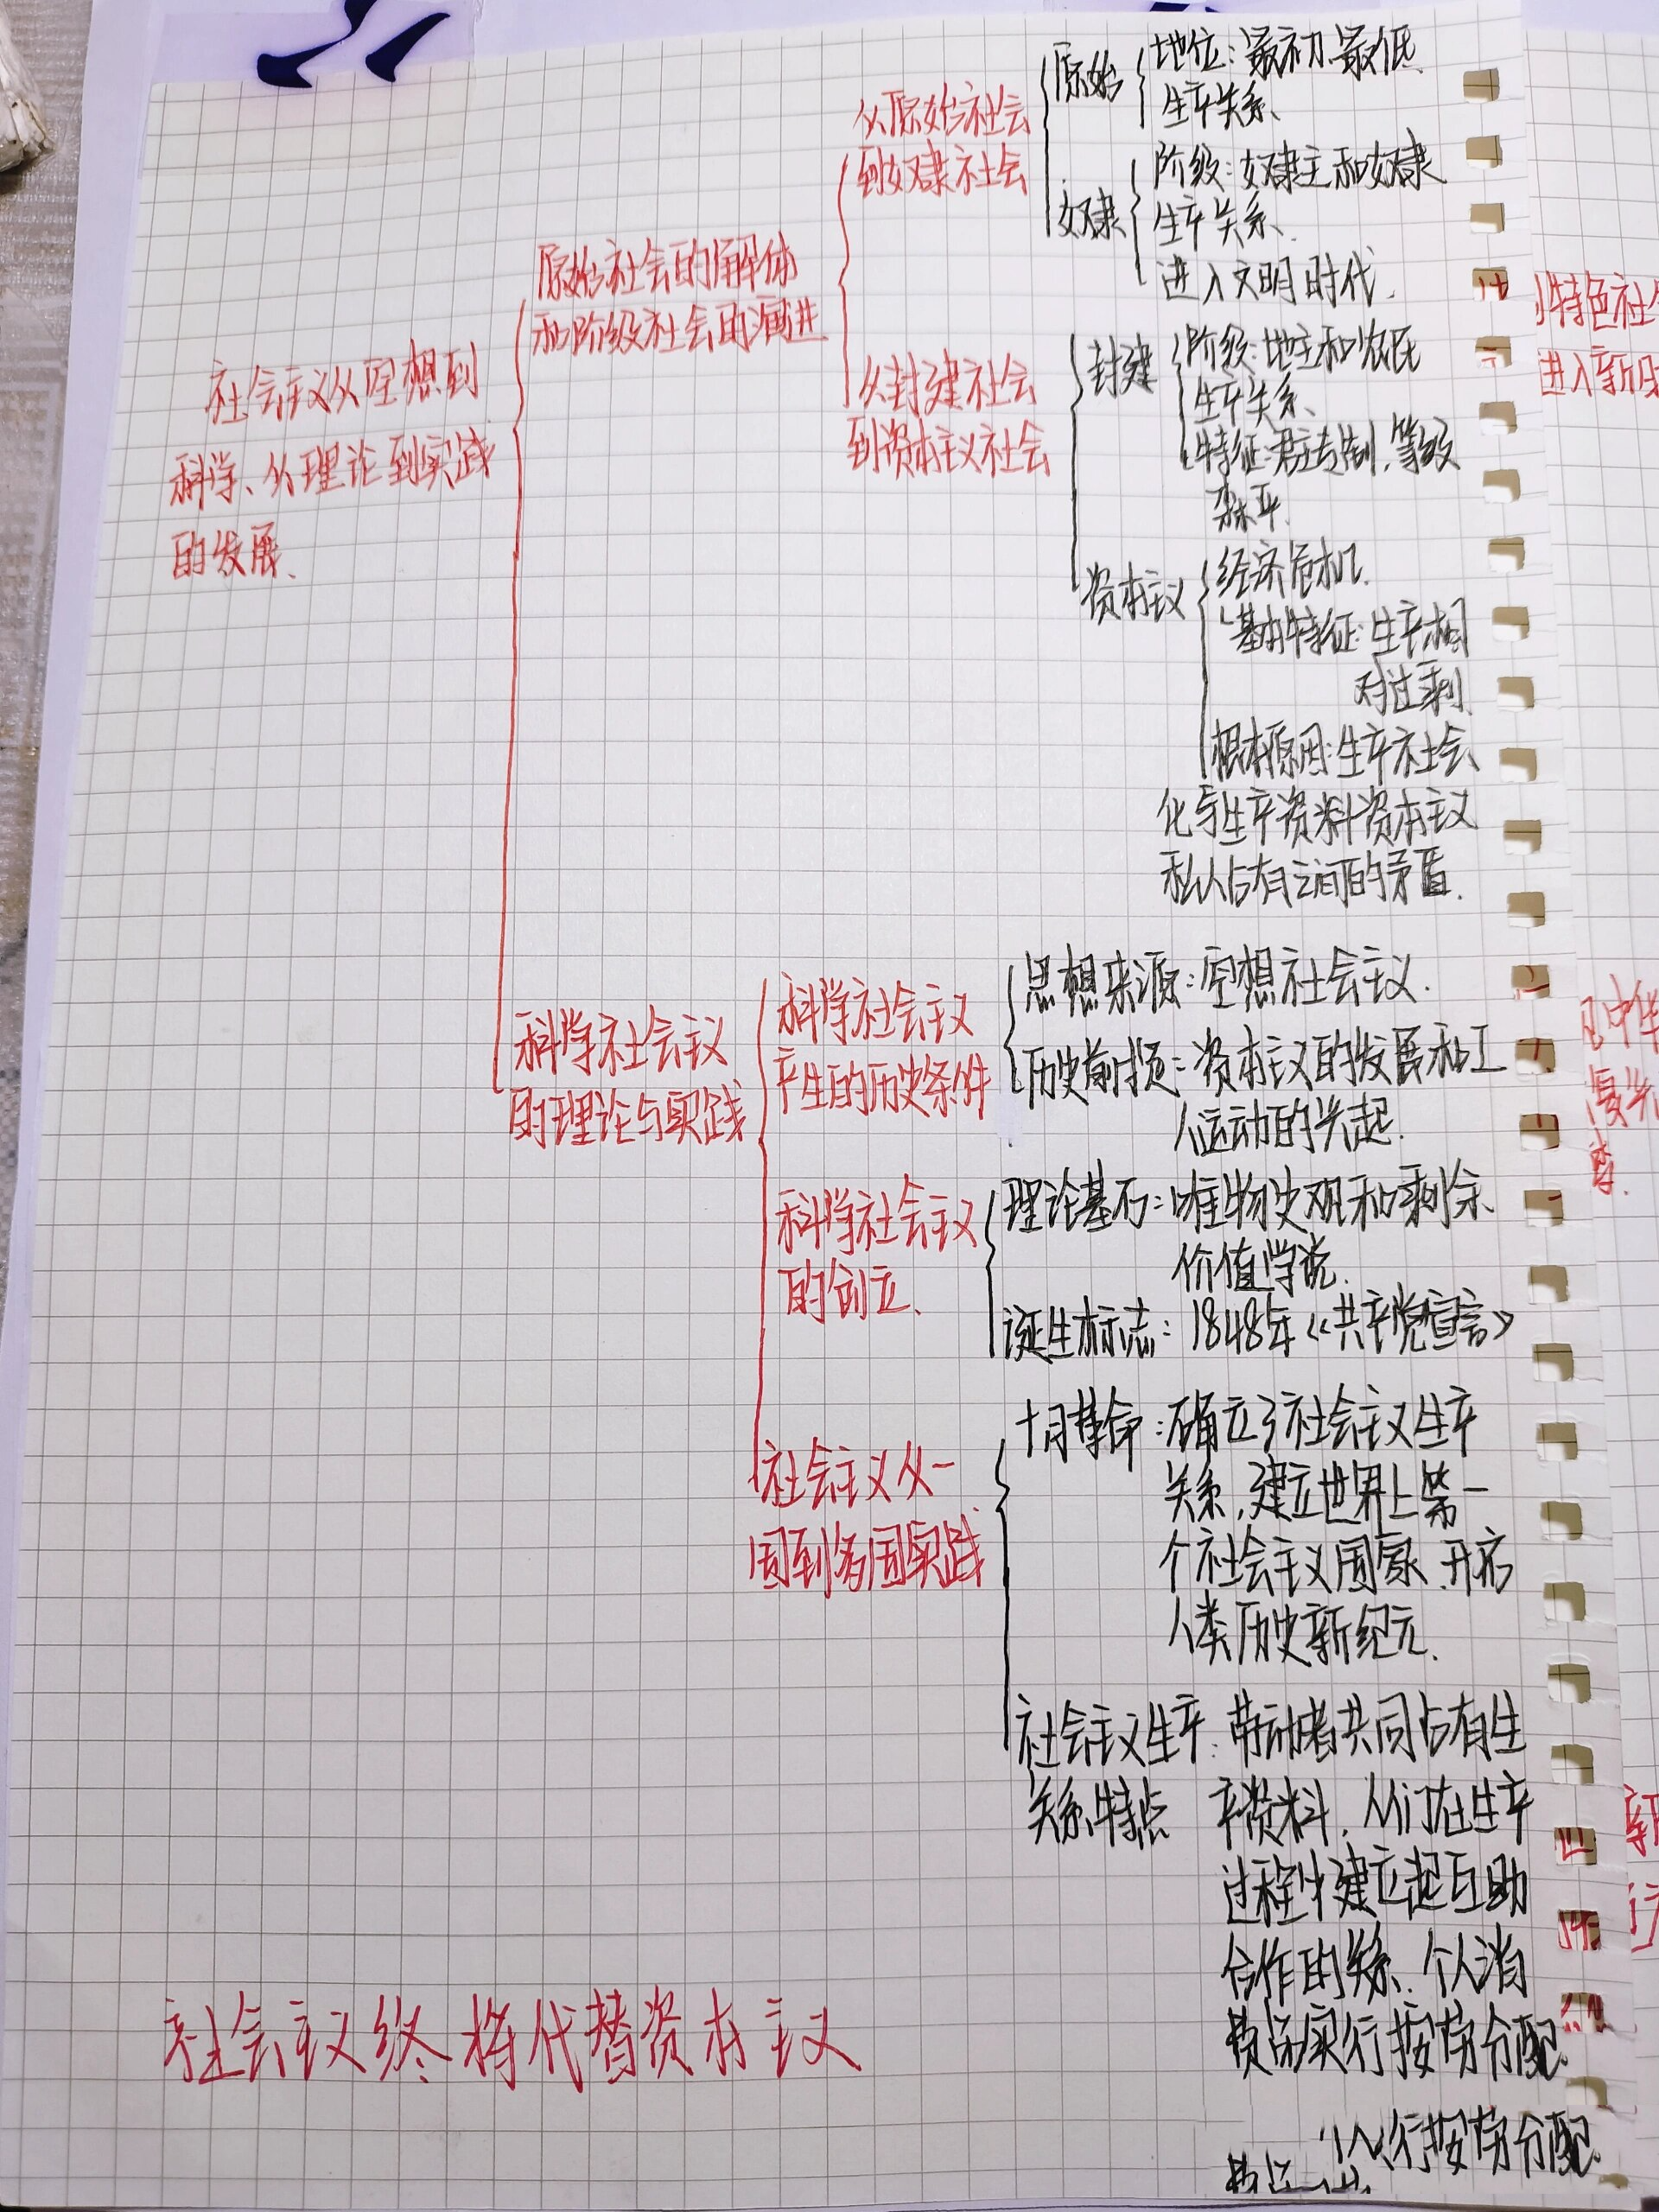 社会主义从空想到
科学、从理论到实践
的发展、
原始社会的解体
和阶级社会的演进
从原始社会
到奴隶社会
原始
地位:最初、最低
生产关系、
奴隶
阶级:奴隶主和奴隶
生产关系、
进入文明时代.
从封建社会
到资本主义社会
封建
阶级:地主和农民
生产关系、
特征:君主专制,等级
森严.
资本主义
经济危机.
基本特征:生产相
对过剩.
根本原因:生产社会
化与生产资料资本主义
私人占有之间的矛盾.
科学社会主义
的理论与实践
科学社会主义
产生的历史条件
思想来源:空想社会主义.
历史前提:资本主义的发展和工
人运动的兴起.
科学社会主义
的创立、
理论基石:唯物史观和剩余
价值学说.
诞生标志:1848年《共产党宣言》
社会主义从一
国到多国实践
十月革命:确立了社会主义生产
关系,建立世界上第一
个社会主义国家、开启
人类历史新纪元.
社会主义生产:劳动者共同占有生
关系特点 产资料,人们在生产
过程中建立起互助
合作的关系、个人消
费品实行按劳分配.
行按劳分配.
社会主义终将代替资本主义
特色社
进入新